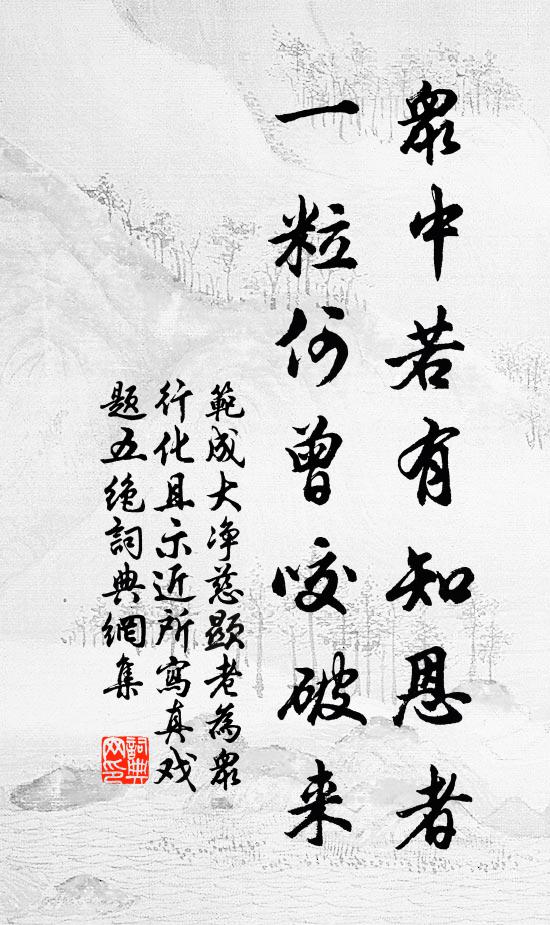 眾中若有知恩者
一粒何曾咬破来
範成大净慈顯老為眾
行化且示近所寫真戏
題五绝詞典網集
詞典网印